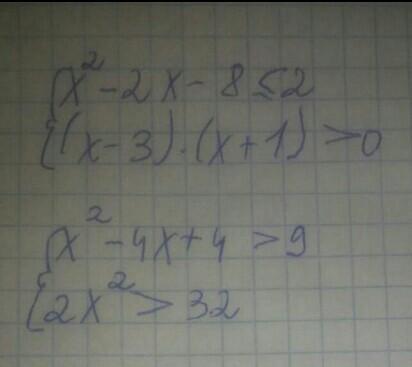 {x² - 2x - 8 ≤ 2
{(x-3)·(x+1) > 0
{x² - 4x + 4 > 9
{2x² > 32